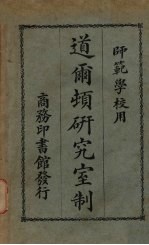 師範學校用
道爾頓研究室制
商務印書館發行